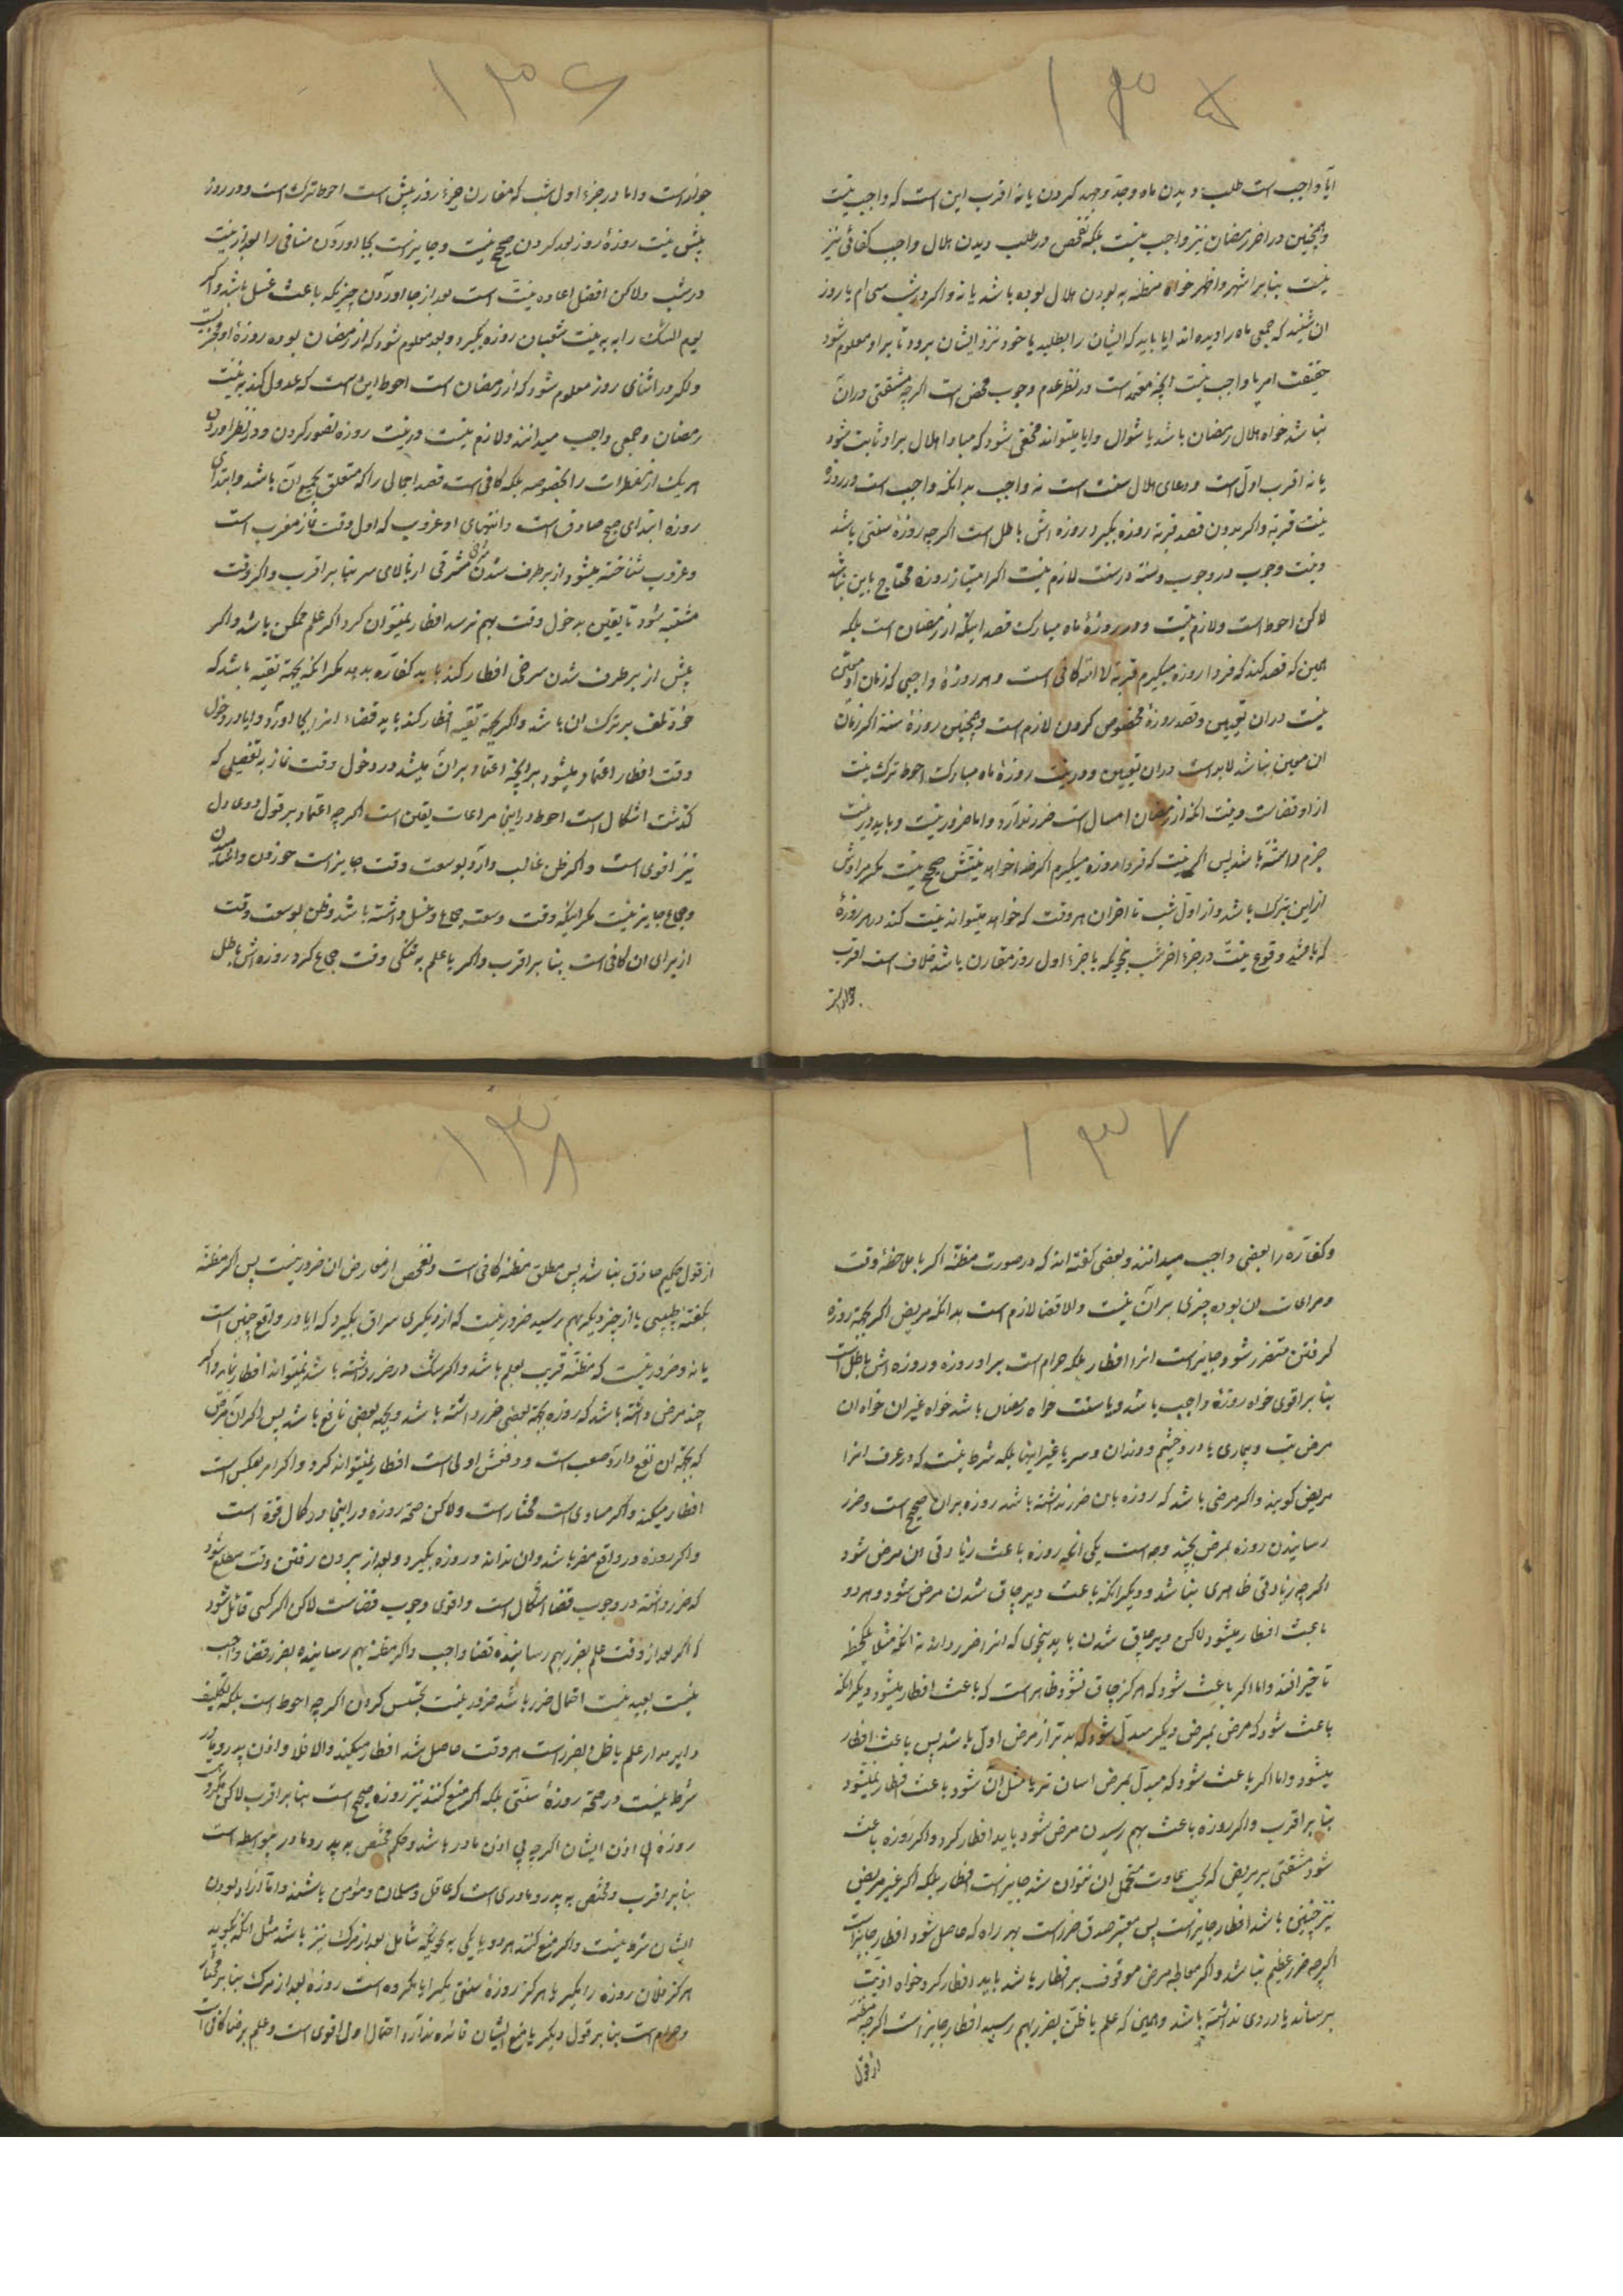 ۱۳۵
آیا واجب است طلب دیدن ماه وجد وجهد کردن یا نه اقرب این است که واجب نیست
وهمچنین در اخر رمضان نیز واجب نیست بلکه تفحص در طلب دیدن هلال واجب کفائی نیز
نیست بنا بر اشهر واظهر خواه مظنه به بودن هلال بوده باشد یا نه واکر در شب سی ام یا روز
ان شنید که جمعی ماه را دیده اند ایا باید که ایشان را بطلبد یا خود نزد ایشان برود تا بر او معلوم شود
حقیقت امر یا واجب نیست انچه معتمد است در نظر عدم وجوب محض است اکرچه مشقتی در ان
نباشد خواه هلال رمضان باشد یا شوال وایا میتواند مخفی شود که مبادا هلال بر او ثابت شود
یا نه اقرب اول است ودعای هلال سنت است نه واجب بدانکه واجب است در روزه
نیت قربة واکر بدون قصد قربة روزه بکیرد روزه اش باطل است اکرچه روزهٔ سنتی باشد
ونیت وجوب در وجوب وسنة در سنت لازم نیست اکر امتیاز روزه محتاج باین نباشد
لاکن احوط است ولازم نیست در روزهٔ ماه مبارک قصد اینکه از رمضان است بلکه
همین که قصد کند که فردا روزه میکیرم قربة لا الله کافی است وهر روزهٔ واجبی که زمان او معین
نیست در ان تعیین وقصد روزهٔ مخصوص کردن لازم است وهمچنین روزهٔ سنة اکر زمان
ان معین نباشد لابد است در ان تعیین ودر نیت روزهٔ ماه مبارک احوط ترک نیت
ادا وقضاست ونیت انکه از رمضان امسال است ضرر ندارد واما ضرور نیست وباید در نیت
جزم داشته باشد پس اکر نیت که فردا روزه میکیرم اکر خدا خواهد نیتش صحیح نیست مکر مرادش
از این تبرک باشد واز اول شب تا اخر ان هر وقت که خواهد میتواند نیت کند در هر روزهٔ
که باشد وقوع نیت در جزء اخر شب بنحویکه با جزء اول روز مقارن باشد خلاف است اقرب
جواز
۱۳۶
جواز است واما در جزء اول شب که مقارن جزء روز پیش است احوط ترک است ودر روز
پیش نیت روزهٔ روز بعد کردن صحیح نیست وجایز است بجا اوردن منافی را بعد از نیت
در شب ولاکن افضل اعاده نیت است بعد از جا اوردن چیزیکه باعث غسل باشد واکر
یوم الشک را به نیت شعبان روزه بکیرد وبعد معلوم شود که از رمضان بوده روزهٔ او مجزیست
واکر در اثنای روز معلوم شود که از رمضان است احوط این است که عدول کند به نیت
رمضان وجمعی واجب میدانند ولازم نیست در نیت روزه تصور کردن ودر نظر اوردن
هر یک از مفطرات را بخصوصه بلکه کافی است قصد اجمالی را که متعلق بجمیع ان باشد وابتدای
روزه ابتدای صبح صادق است وانتهای او غروب که اول وقت نماز مغرب است
وغروب شناخته میشود از برطرف شدن سرخی مشرقی از بالای سر بنا بر اقرب واکر وقت
مشتبه شود تا یقین بدخول وقت بهم نرسد افطار نمیتوان کرد اکر علم ممکن باشد واکر
پیش از برطرف شدن سرخی افطار کند باید کفاره بدهد مکر انکه بجهة تقیه باشد که
خوف تلف بر ترک ان باشد واکر بجهة تقیه افطار کند باید قضاء انرا بجا اورد وایا در دخول
وقت افطار اعتماد میشود بر انچه اعتماد بر ان میشد در دخول وقت نماز به تفصیلی که
کذشت اشکال است احوط در اینجا مراعات یقین است اکرچه اعتماد بر قول دو عادل
نیز اقوی است واکر ظن غالب دارد بوسعت وقت جایز است خوردن واشامیدن
وجماع جایز نیست مکر اینکه وقت وسعت جماع وغسل داشته باشد وظن بوسعت وقت
از برای ان کافی است بنا بر اقرب واکر با علم به تنکی وقت جماع کرد روزه اش باطل
۱۳۷
وکفاره را بعضی واجب میدانند وبعضی کفته اند که در صورت مظنه اکر با ملاحظهٔ وقت
ومراعات ان بوده چیزی بر ان نیست والا قضا لازم است بدانکه مریض اکر بجهة روزه
کرفتن متضرر شود جایز است انرا افطار بلکه حرام است بر او روزه وروزه اش باطل است
بنا بر اقوی خواه روزهٔ واجب باشد ویا سنت خواه رمضان باشد خواه غیر ان خواه ان
مرض تب وبیماری یا درد چشم ودندان وسر یا غیر اینها بلکه شرط نیست که در عرف انرا
مریض کویند واکر مرضی باشد که روزه بان ضرر نداشته باشد روزه بر ان صحیح است وضرر
رسانیدن روزه بمرض بچند وجه است یکی انکه روزه باعث زیادتی ان مرض شود
اکرچه زیادتی ظاهری نباشد ودیکر انکه باعث دیر چاق شدن مرض شود وهر دو
باعث افطار میشود لاکن دیر چاق شدن باید بنحوی که انرا ضرر دانند نه انکه مثلا یکلحظه
تاخیر افتد واما اکر باعث شود که هرکز چاق نشود ظاهر است که باعث افطار میشود دیکر انکه
باعث شود که مرض بمرض دیکر مبدل شود که بدتر از مرض اول باشد پس باعث افطار
میشود واما اکر باعث شود که مبدل بمرض اسان تر یا مثل ان شود باعث افطار نمیشود
بنا بر اقرب واکر روزه باعث بهم رسیدن مرض شود باید افطار کرد واکر روزه باعث
شود مشقتی بر مریض که بحسب عادت متحمل ان نتوان شد جایز است افطار بلکه اکر غیر مریض
نیز چنین باشد افطار جایز است پس معتبر صدق ضرر است بهر راه که حاصل شود افطار جایز است
اکرچه ضرر عظیم نباشد واکر معالجهٔ مرض موقوف بر افطار باشد باید افطار کرد خواه اذیت
برساند یا دردی نداشته باشد وهمین که علم یا ظن بضرر بهم رسید افطار جایز است اکرچه مظنه
از قول
۱۳۸
از قول حکیم حاذق نباشد پس مطلق مظنه کافی است وتفحص از معارض ان ضرور نیست پس اکر مظنه
بکفتهٔ طبیبی یا از چیز دیکر بهم رسید ضرور نیست که از دیکری سراق بکیرد که ایا در واقع چنین است
یا نه وضرور نیست که مظنه قریب بعلم باشد واکر شک در ضرر داشته باشد نمیتواند افطار نماید واکر
چند مرض داشته باشد که روزه بجهة بعضی ضرر داشته باشد وبجهة بعضی نافع باشد پس اکر ان مرض
که بجهة ان نفع دارد صعب است ودفعش اولی است افطار نمیتواند کرد واکر امر بعکس است
افطار میکند واکر مساوی است مختار است ولاکن صحة روزه در اینجا در کمال قوة است
واکر روزه در واقع مضر باشد وان نداند وروزه بکیرد وبعد از بیرون رفتن وقت مطلع شود
که ضرر داشته در وجوب قضا اشکال است واقوی وجوب قضاست لاکن اکر کسی قائل شود
که اکر بعد از وقت علم بضرر بهم رسانیده قضا واجب واکر مظنه بهم رسانیده بضرر قضا واجب
نیست بعید نیست احتمال ضرر باشد ضرور نیست تجسس کردن اکرچه احوط است بلکه تکلیف
دایر مدار علم یا ظن بضرر است هر وقت حاصل شد افطار میکند والا فلا واذن پدر ومادر
شرط نیست در صحة روزهٔ سنتی بلکه اکر منع کنند نیز روزه صحیح است بنا بر اقرب لاکن مکروه
روزه بی اذن ایشان اکرچه بی اذن مادر باشد وحکم مختص به پدر ومادر بیواسطه است
بنا بر اقرب ومختص به پدر ومادری است که عاقل ومسلمان ومؤمن باشند واما ازاد بودن
ایشان شرط نیست واکر منع کنند هر دو یا یکی به نحویکه شامل بعد از مرک نیز باشد مثل انکه بکوید
هرکز فلان روزه را مکیر یا هرکز روزهٔ سنتی مکیر ایا مکروه است روزه بعد از مرک بنا بر مختار
وحرام است بنا بر قول دیکر یا منع ایشان فائده ندارد احتمال اول اقوی است وعلم برضا کافی است